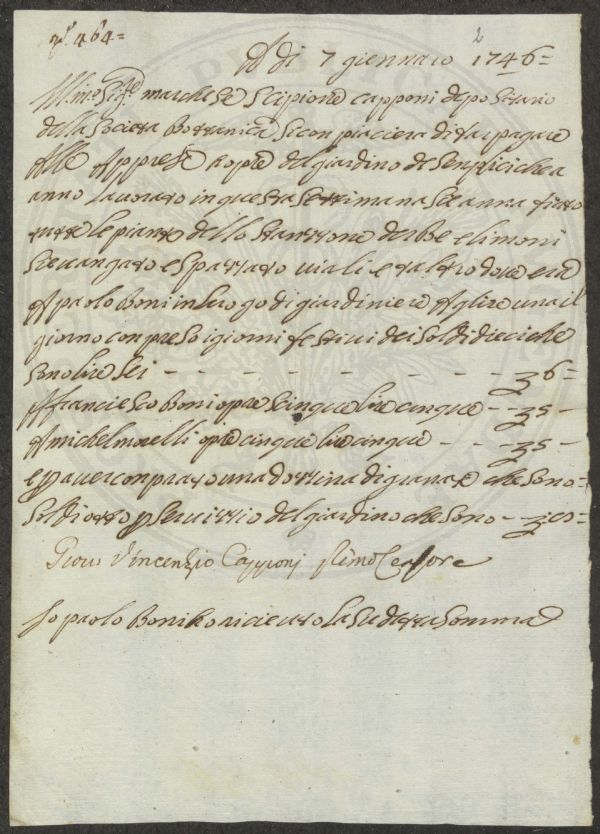 464=
2
A di 7 giennaro 1746=
Ill.mo Sig.re marchese Scipione capponi depositario
della Societa Bottanica Si conpiaciera di far pagare
Alle Apprese opre del giardino de Senplici che a
anno Lavorato in questa Settimana
tutte le piante dello Stanzzone der be e limoni
e Spazzato viali e
A paolo Boni in luogo di giardiniere A lire una il
giorno conpreso i giorni festivi dei Soldi dieci che
Sono lire Sei - - - - - - - - - 6=
A franciesco Boni opre cinque lire cinque - - 5 -
A michel morelli opre cinque lire cinque - - - 5 -
e p aver conprato una dozzina di granate che Sono=
Soldi otto p Servizzio del giardino che Sono - -
Giov Vincenzio Capponi
Io paolo Boni o riceuto la Su detta Somma